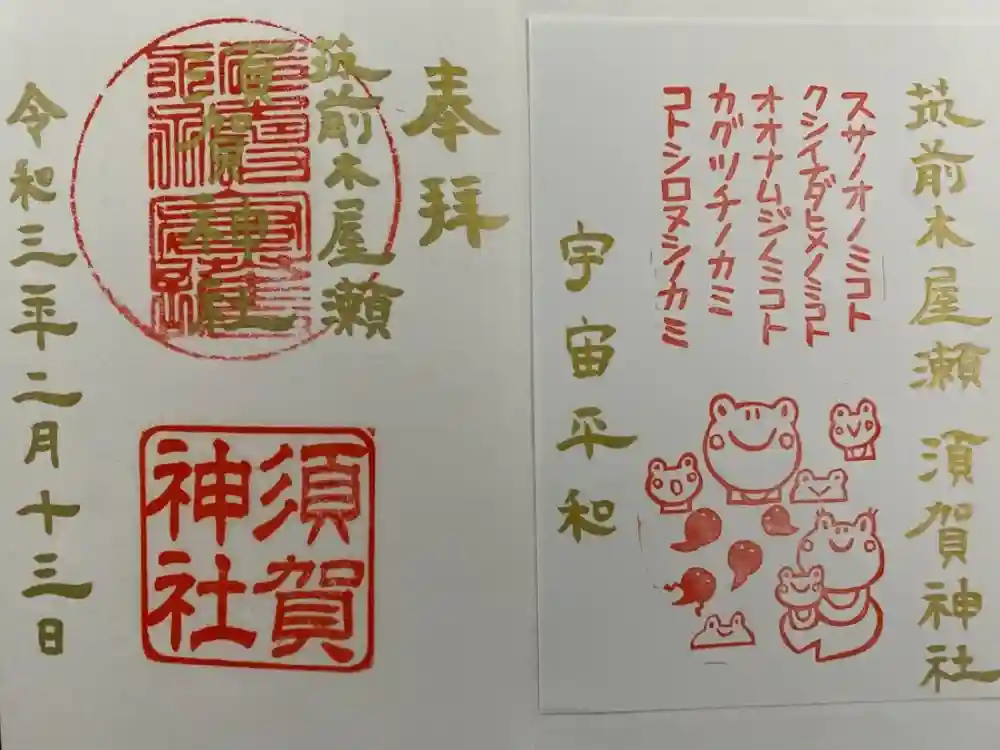 奉拝
筑前木屋瀬
須賀神社
須賀神社
令和三年二月十三日
筑前木屋瀬 須賀神社
スサノオノミコト
クシイナダヒメノミコト
オオナムジノミコト
カグツチノカミ
コトシロヌシノカミ
宇宙平和